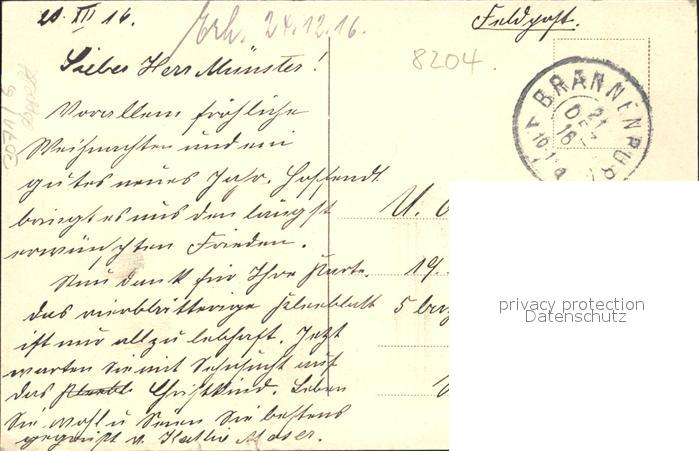 20. XII 16.
Erh. 24.12.16.
Feldpost.
8204
Lieber Herr Münster!
Vor allem fröhliche
Weihnachten und ein
gutes neues Jahr. Hoffendl.
bringt es uns den längst
erwünschten Frieden.
Nun dank für Ihre Karte.
das vierblätterige Kleeblatt
ist nur allzu lebhaft. Jetzt
warten Sie mit Sehnsucht auf
das Christkind. Leben
Sie wohl u Seien Sie bestens
gegrüßt v. Kathie Moser.
BRANNENBURG
21 DEZ
16
10-11
U.
19.
5 bay
privacy protection
Datenschutz